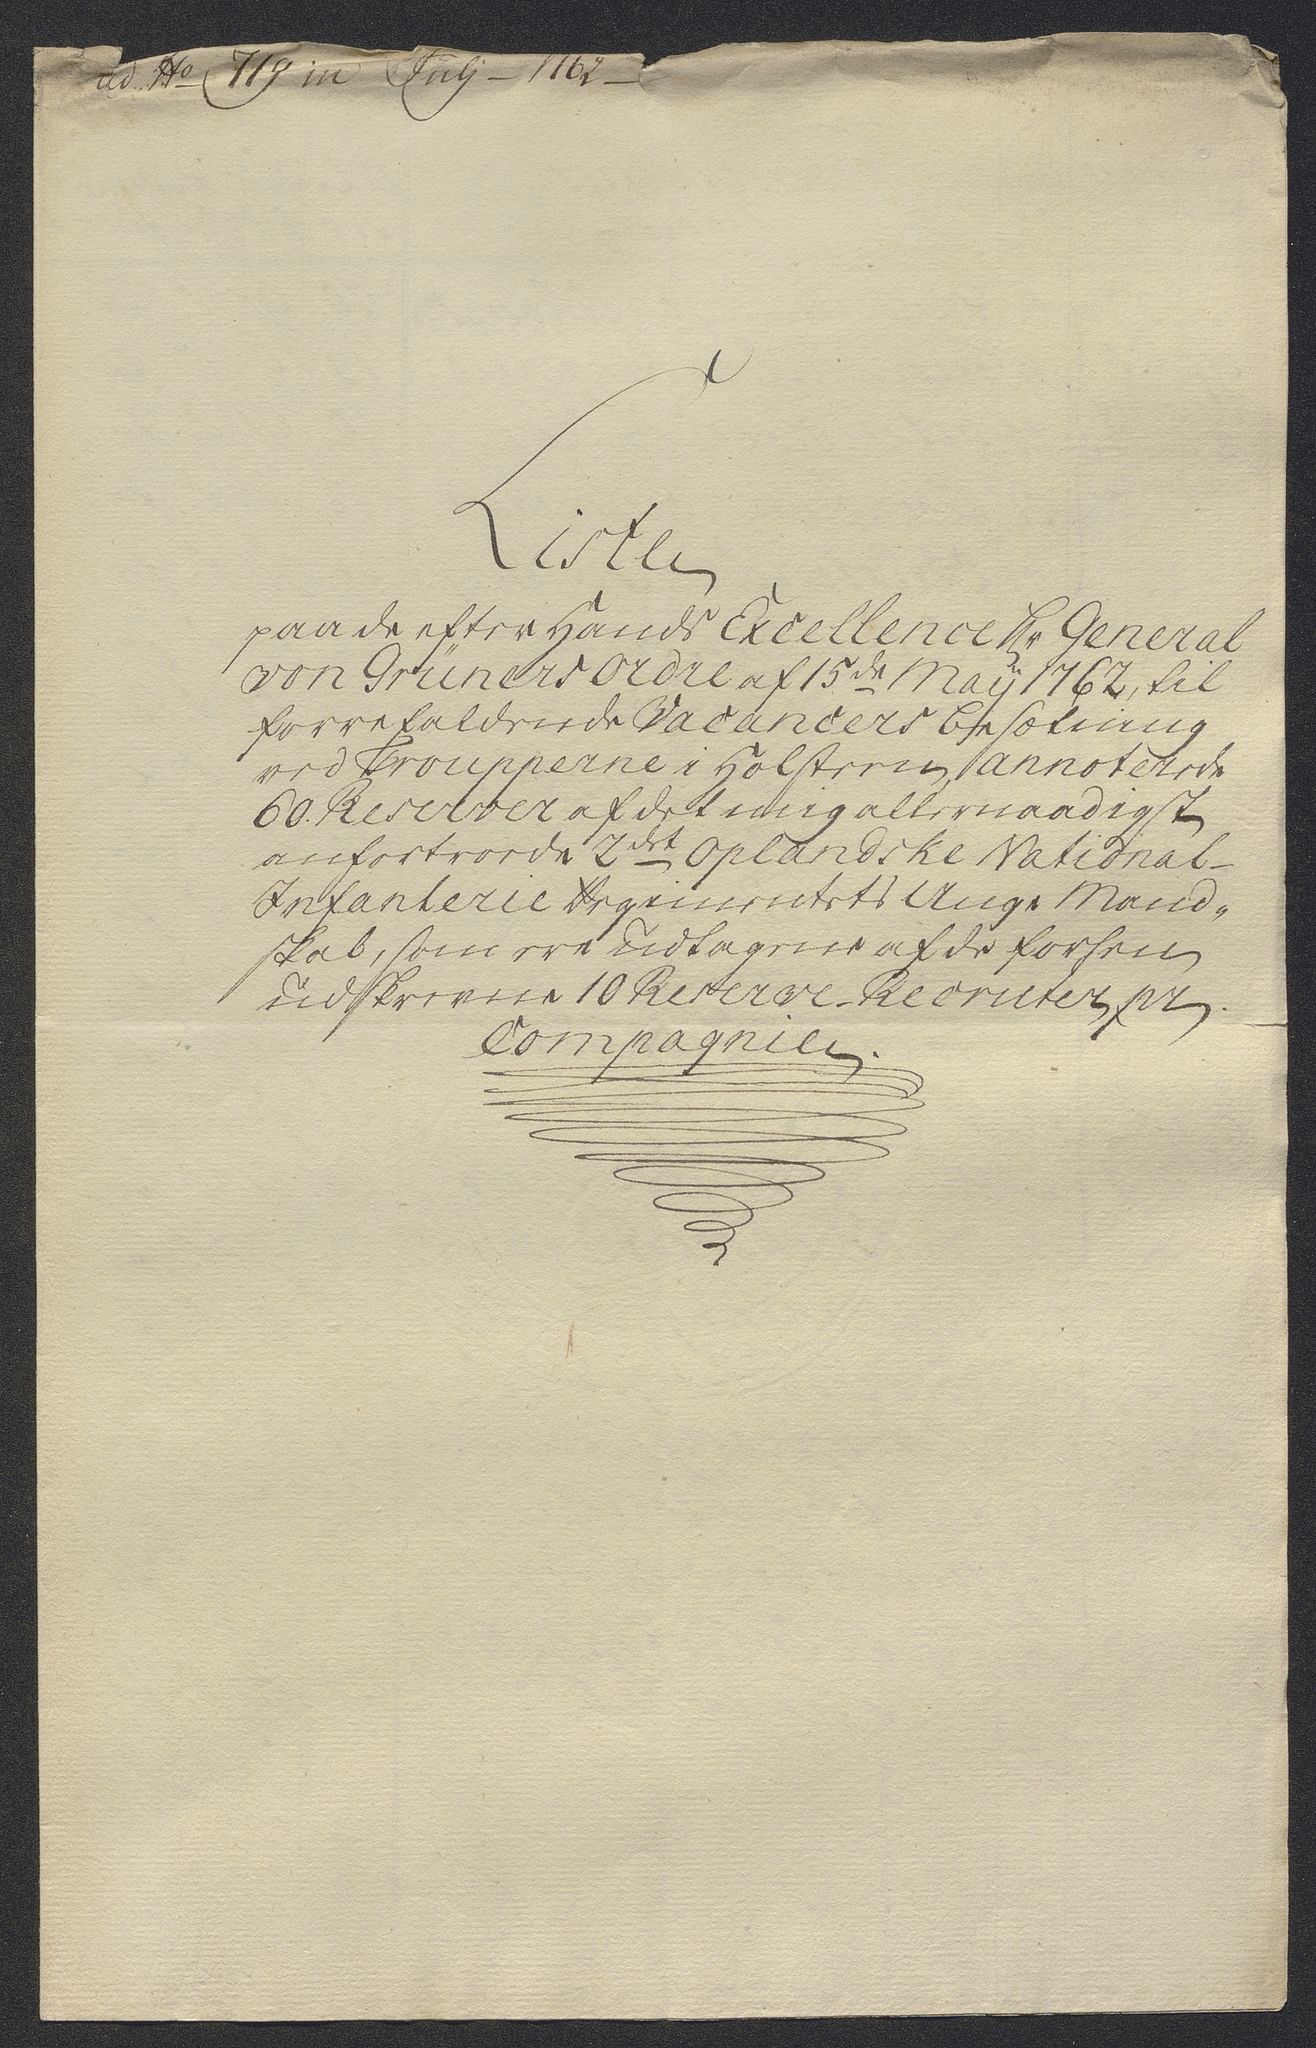 ad No 719 in Julj - 1762 -
Liste
paa de efter Hands Excellence Hr General
von Grüners Ordre af 15de Maÿ 1762, til
forrefaldende Vacancers besætning
ved Troupperne i Holsteen, annoterede
60. Reserver af det mig allernaadigst
anfortroede 2det Oplandske National-
Infanterie Regimentets Unge Mand„
skab, som ere udtagene af de forhen
udskrevne 10 Reserve-Recruter pr.
Compagnie.